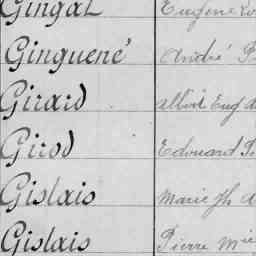 Gingal Eugène
Ginguené André
Girard Albert Eug
Girod Edouard
Gislais Marie Jh
Gislais Pierre Mie